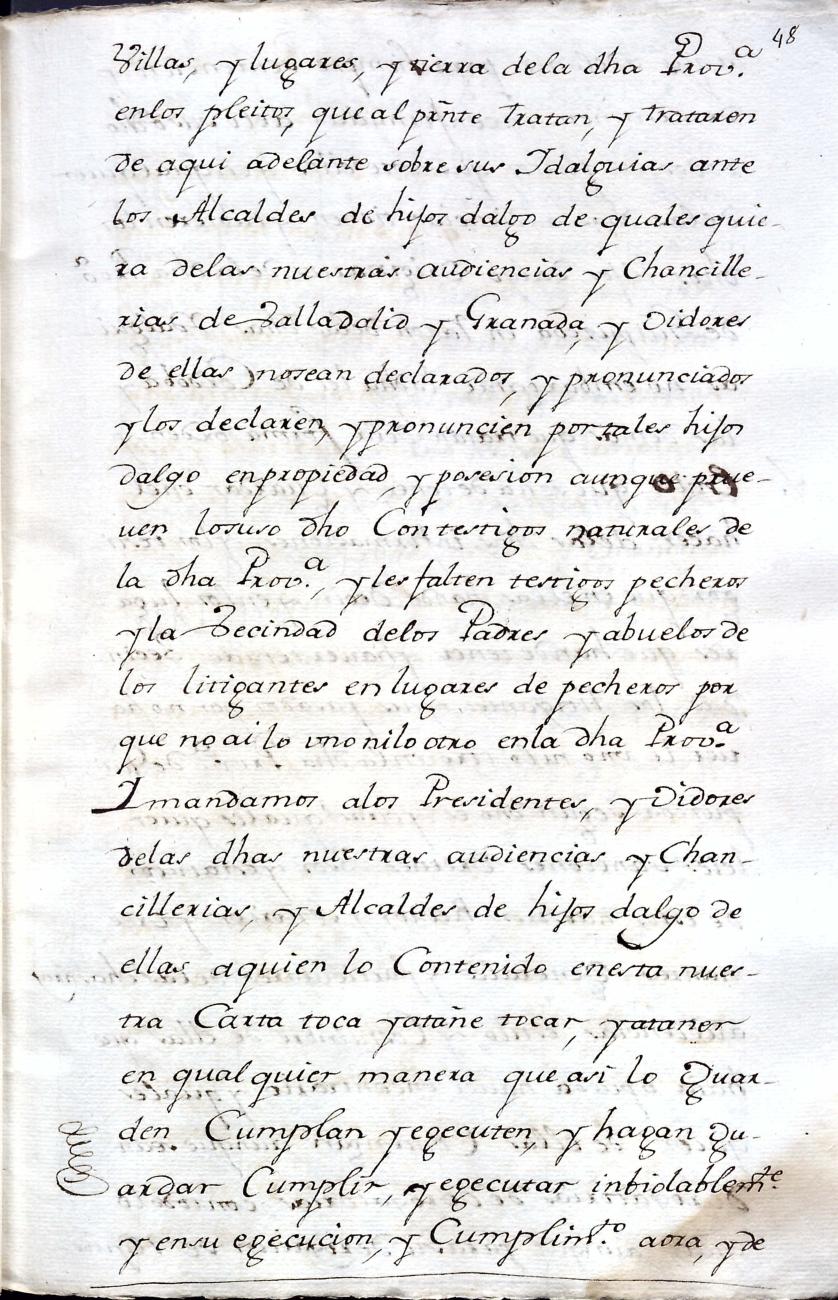 48
Villas, y lugares, y tierra dela dha Prov.ª
enlos pleitos, que al prñte tratan, y trataren
de aqui adelante sobre sus Idalguias ante
los Alcaldes de hijos dalgo de quales quie-
ra delas nuestras audiencias y Chancille-
rias de Valladolid y Granada, y Oidores
de ellas nosean declarados, y pronunciados
y los declaren, y pronuncien por tales hijos
dalgo enpropiedad, y posesion aunque prue-
uen losuso dho Contestigos naturales de
la dha Prov.ª, y les falten testigos pecheros
y la Vecindad delos Padres y abuelos de
los litigantes en lugares de pecheros por
que no ai lo vno nilo otro enla dha Prov.ª
I mandamos alos Presidentes, y Oidores
delas dhas nuestras audiencias y Chan-
cillerias, y Alcaldes de hijos dalgo de
ellas aquien lo Contenido enesta nues-
tra Carta toca yatañe tocar, yatañer
en qual quier manera que asi lo Guar-
den Cumplan y egecuten, y hagan Gu-
ardar Cumplir, y egecutar inbiolablem.te
y ensu egecucion, y Cumplim.to aora, y de